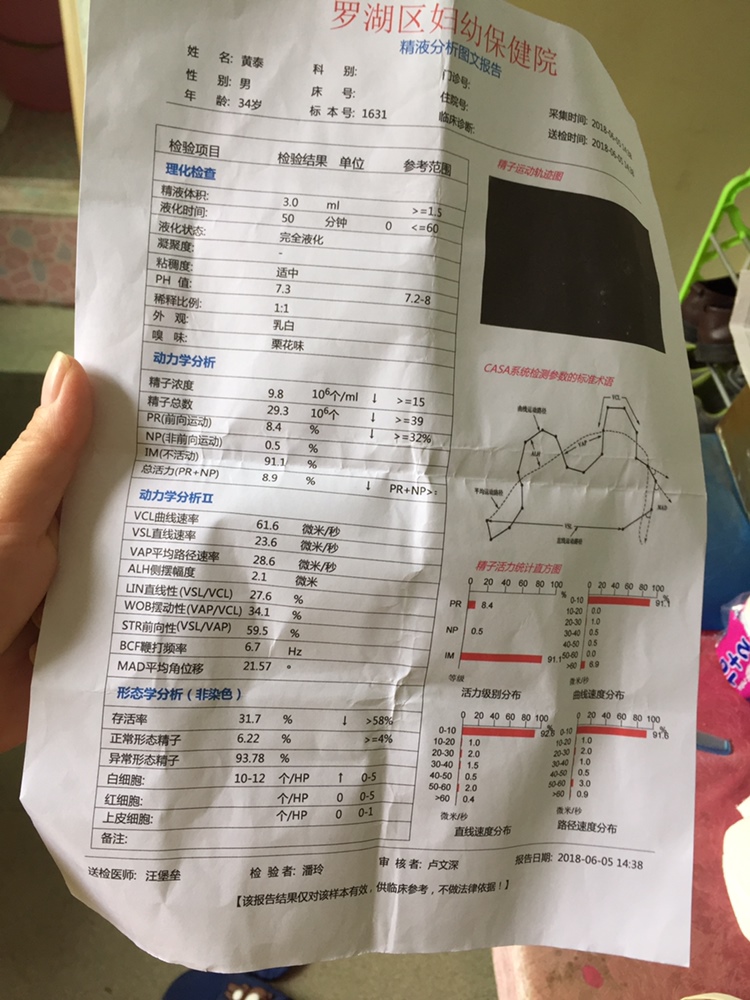 罗湖区妇幼保健院
精液分析图文报告
姓 名: 黄泰 科 别: 门诊号:
性 别: 男 床 号: 住院号: 采集时间: 2018-06-05
年 龄: 34岁 标 本 号: 1631 临床诊断: 送检时间: 2018-06-05
检验项目 检验结果 单位 参考范围
理化检查
精液体积: 3.0 ml >=1.5
液化时间: 50 分钟 0 <=60
液化状态: 完全液化
凝聚度: -
粘稠度: 适中
PH 值: 7.3 7.2-8
稀释比例: 1:1
外 观: 乳白
嗅 味: 栗花味
动力学分析
精子浓度 9.8 10⁶个/ml ↓ >=15
精子总数 29.3 10⁶个 ↓ >=39
PR(前向运动) 8.4 % ↓ >=32%
NP(非前向运动) 0.5 %
IM(不活动) 91.1 %
总活力(PR+NP) 8.9 % ↓ PR+NP>:
动力学分析II
VCL曲线速率 61.6 微米/秒
VSL直线速率 23.6 微米/秒
VAP平均路径速率 28.6 微米/秒
ALH侧摆幅度 2.1 微米
LIN直线性(VSL/VCL) 27.6 %
WOB摆动性(VAP/VCL) 34.1 %
STR前向性(VSL/VAP) 59.5 %
BCF鞭打频率 6.7 Hz
MAD平均角位移 21.57 °
形态学分析（非染色）
存活率 31.7 % ↓ >58%
正常形态精子 6.22 % >=4%
异常形态精子 93.78 %
白细胞: 10-12 个/HP ↑ 0-5
红细胞: 个/HP 0 0-5
上皮细胞: 个/HP 0 0-1
备注:
精子运动轨迹图
CASA系统检测参数的标准术语
曲线运动路径
VCL
ALH
VAP
平均运动路径
MAD
VSL
直线运动路径
精子活力统计直方图
0 20 40 60 80 100
%
PR 8.4
NP 0.5
IM 91.1
等级
活力级别分布
0 20 40 60 80 100
%
0-10 91.1
10-20 0.0
20-30 1.0
30-40 0.5
40-50 0.5
50-60 0.0
>60 6.9
微米/秒
曲线速度分布
0 20 40 60 80 100
%
0-10 92.6
10-20 1.0
20-30 2.0
30-40 1.5
40-50 0.5
50-60 2.0
>60 0.4
微米/秒
直线速度分布
0 20 40 60 80 100
%
0-10 91.6
10-20 1.0
20-30 2.0
30-40 1.0
40-50 0.5
50-60 3.0
>60 0.9
微米/秒
路径速度分布
送检医师: 汪堡垒 检 验 者: 潘玲 审 核 者: 卢文深 报告日期: 2018-06-05 14:38
【该报告结果仅对该样本有效，供临床参考，不做法律依据！】